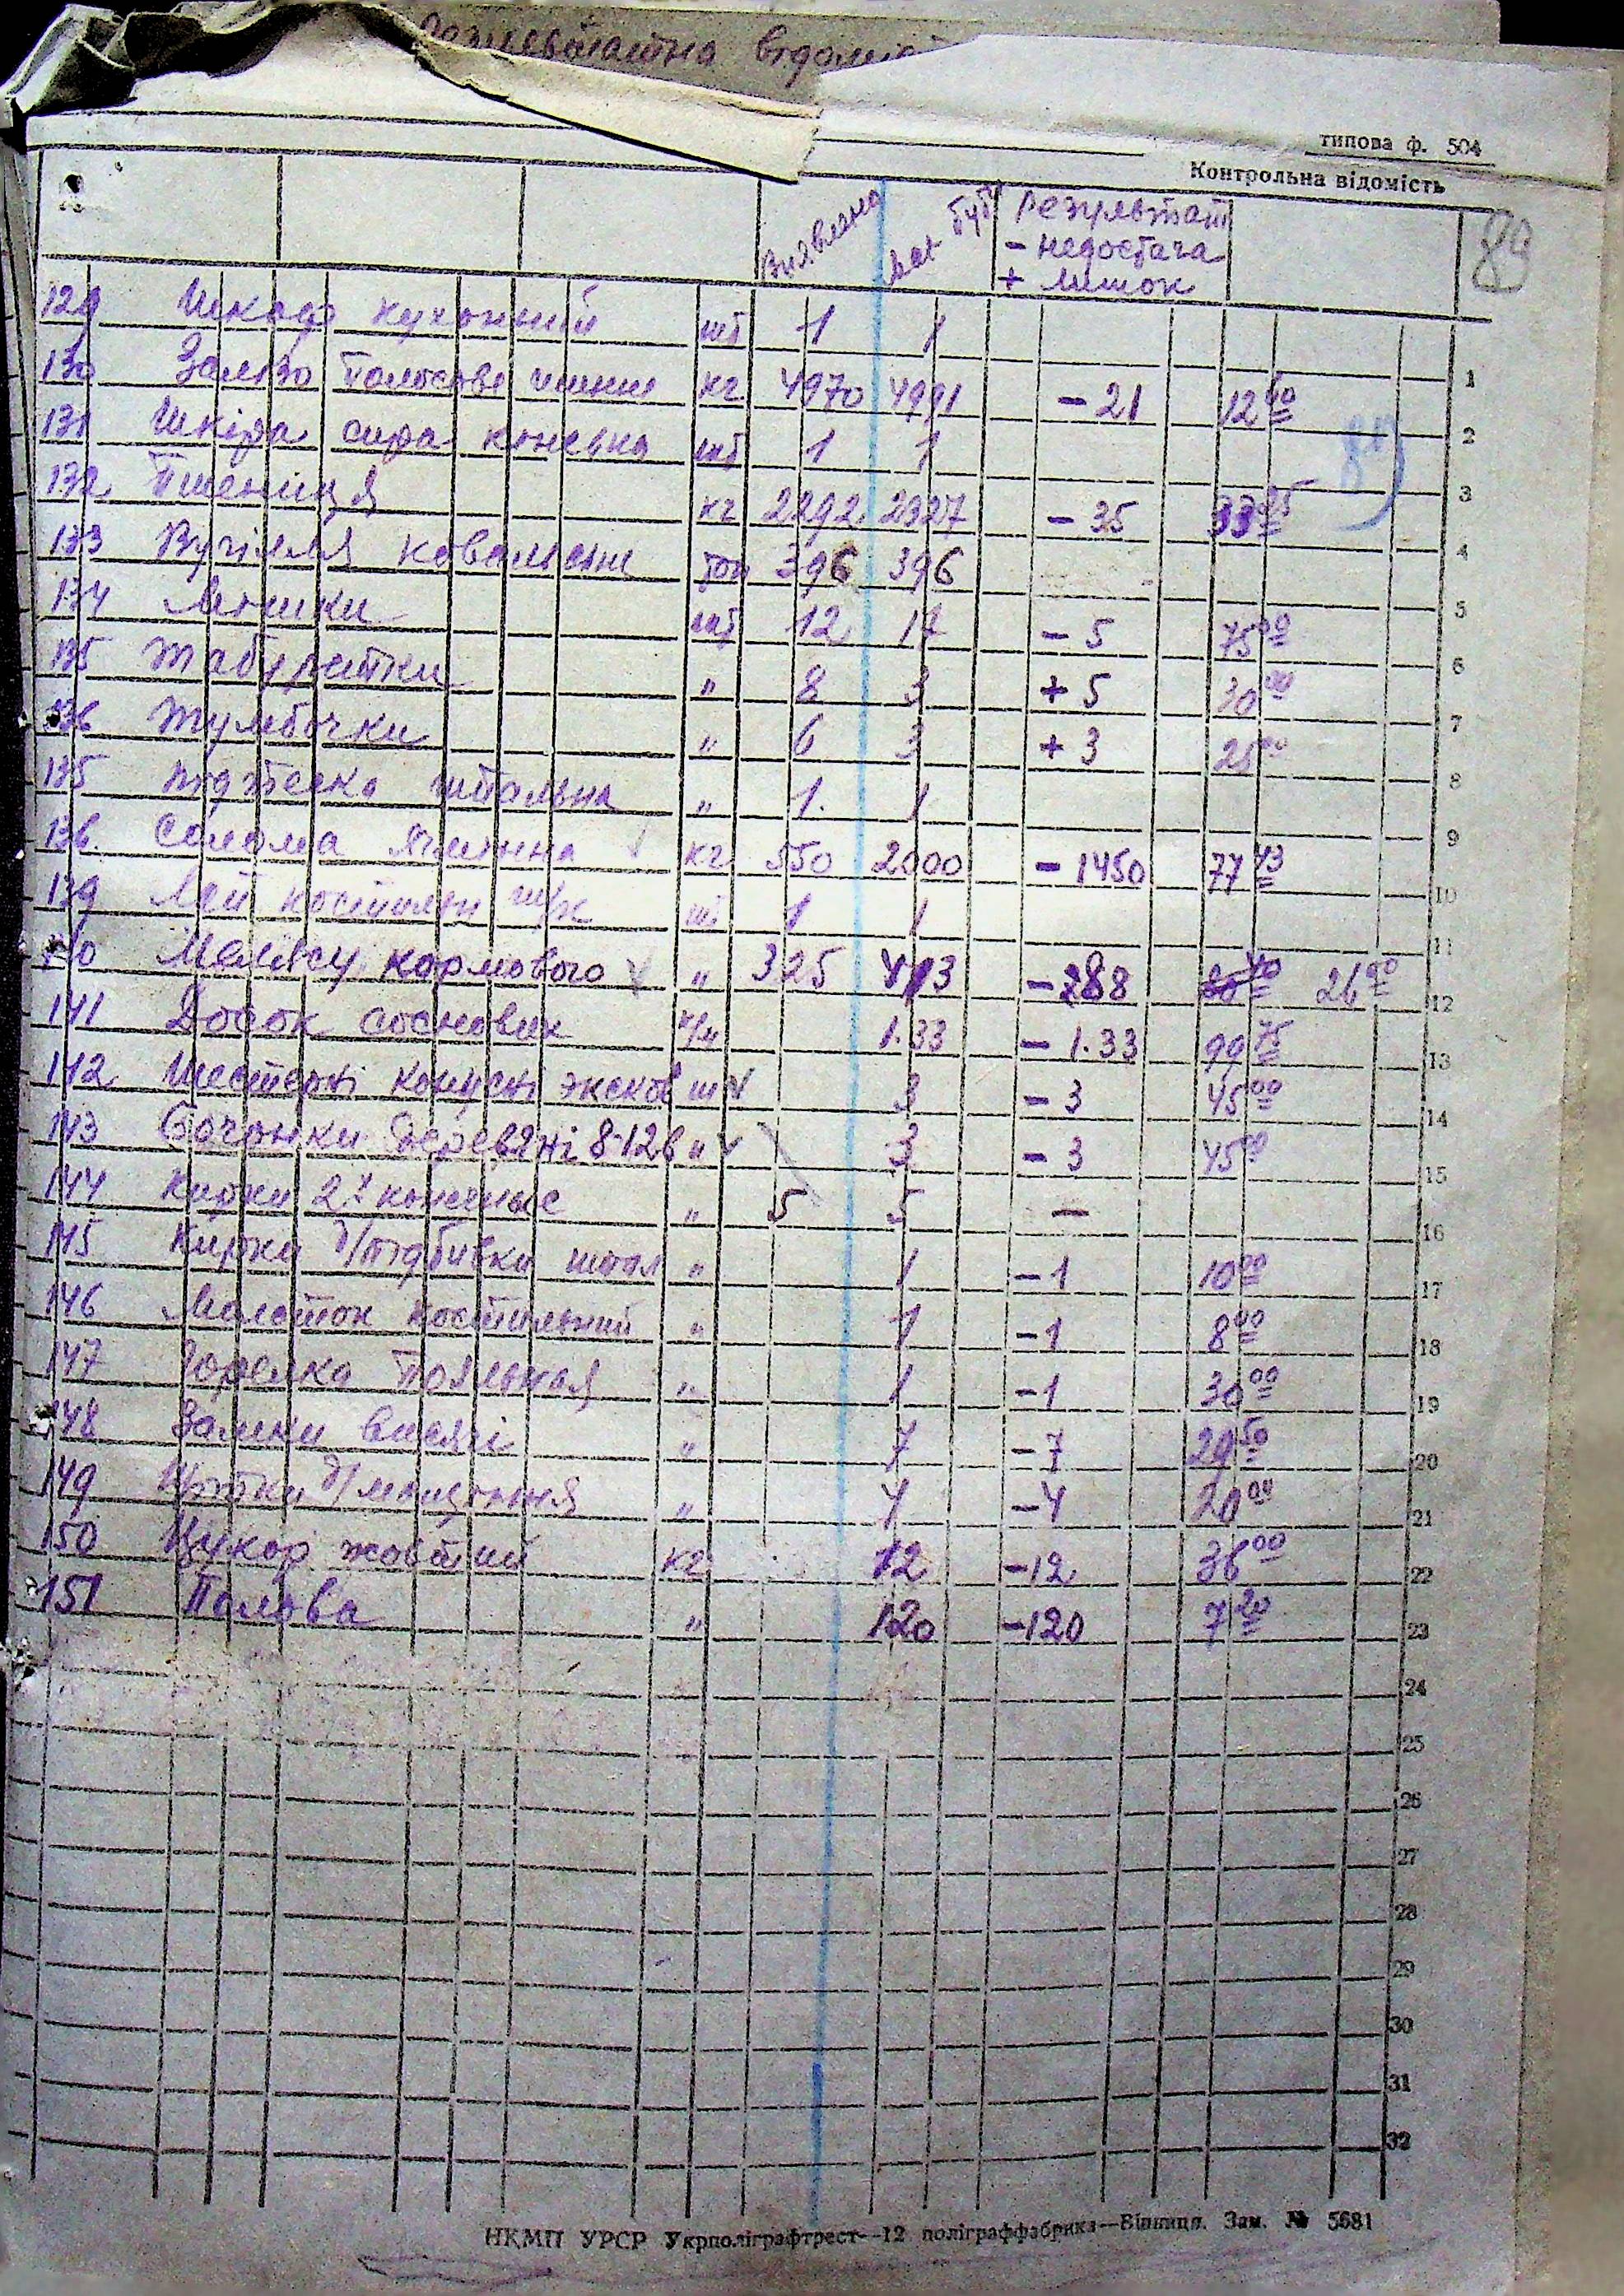 Результатна відоміст
типова ф. 504
Контрольна відомість
89
Виявлено
має бут
Результат
- недостача
+ лишок
129 Шкаф кухонний шт 1 1 1
130 Залізо полосове шинне кг 4970 4991 - 21 12 60 2
131 Шкіра сира коневна шт 1 1 3
132 Пшениця кг 2292 2327 - 35 33 25 4
133 Вугілля ковальське тон 396 396 5
134 шт 12 17 - 5 75 00 6
135 Табуретки " 8 3 + 5 30 00 7
136 Тумбочки " 6 3 + 3 25 00 8
135 " 1 1 9
136 Солома ячмінна кг 550 2000 - 1450 77 43 10
139 шт 1 1 11
140 Меляси кормового " 325 413 - 288 26 40 12
141 Досок соснових 1.33 - 1.33 99 75 13
142 Шестерні конусні экскав шт 3 - 3 45 00 14
143 Бочонки деревяні 8-12в " 3 - 3 45 00 15
144 Кирки 2х конечные " 5 5 — 16
145 Кирки д/підбивки шпал " 1 - 1 10 00 17
146 Молоток костильний " 1 - 1 8 00 18
147 Горелка паяльная " 1 - 1 30 00 19
148 Замки висячі " 7 - 7 29 50 20
149 Щітки д/ " 4 - 4 20 00 21
150 Цукор жовтий кг 12 - 12 36 00 22
151 Полова " 120 - 120 7 20 23
24
25
26
27
28
29
30
31
32
НКМП УРСР Укрполіграфтрест--12 поліграффабрика—Вінниця. Зам. № 5681